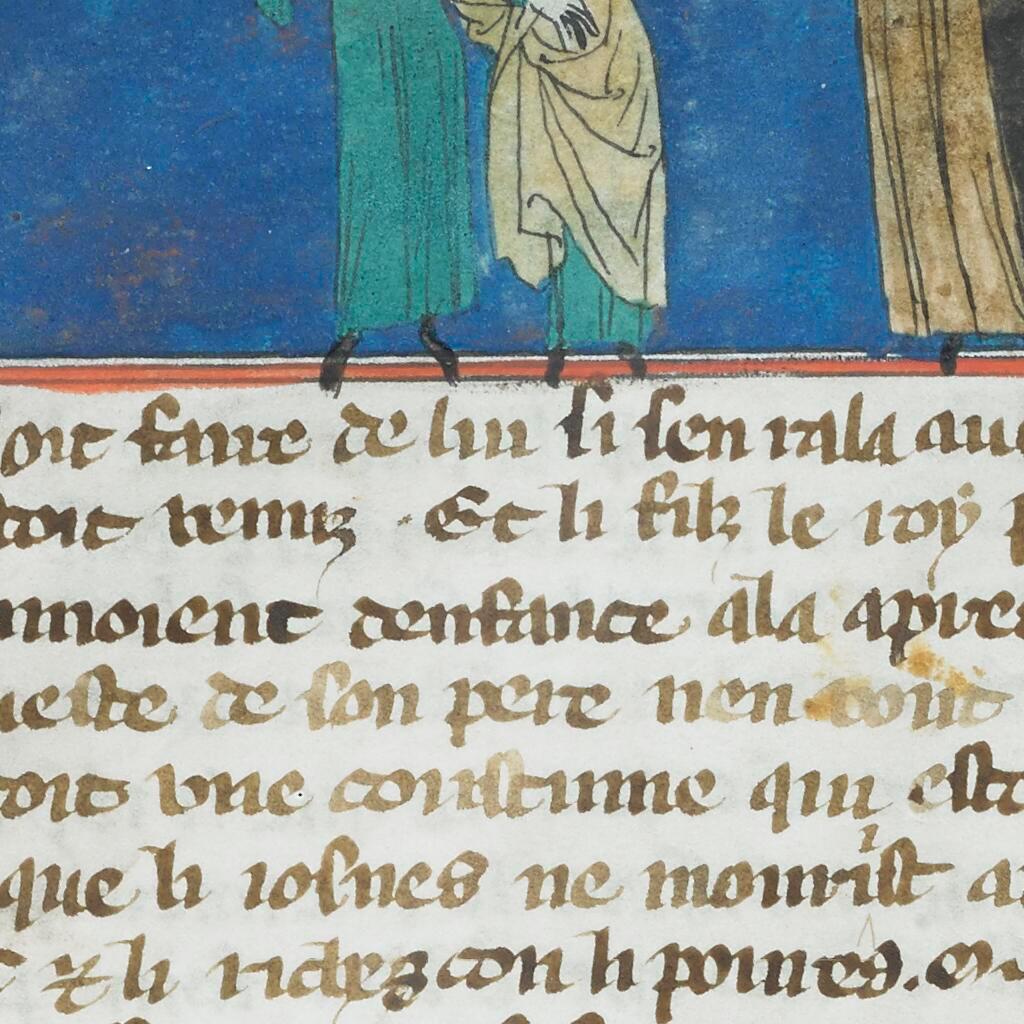 oit faire de lui si sen rala au
toit venuz . Et li filz le roy
moient denfance ala apres
ueste de son pere nen
toit une coustume qui esto
que li iosnes ne mourist a
li riches con li poures. en